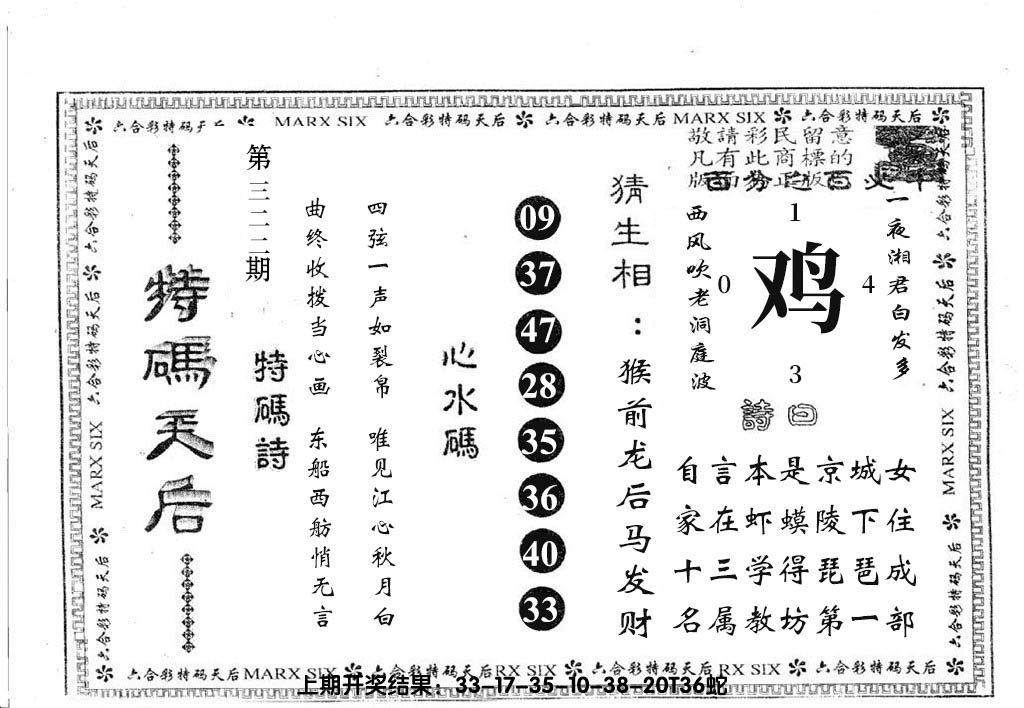 六合彩特码天后 MARX SIX 六合彩特码天后 六合彩特码天后 MARX SIX 六合彩特码天后
敬請彩民留意
凡有此商標的
版面为正版
第三二二期
特碼天后
特碼詩
四弦一声如裂帛 唯见江心秋月白
曲终收拨当心画 东船西舫悄无言
心水碼
09
37
47
28
35
36
40
33
猜生相：猴前龙后马发财
一夜湘君白发多
西风吹老洞庭波
1
0 鸡 4
3
詩曰
自言本是京城女
家在虾蟆陵下住
十三学得琵琶成
名属教坊第一部
六合彩特码天后 MARX SIX 六合彩特码天后
六合彩特码天后 MARX SIX 六合彩特码天后
六合彩特码天后 MARX SIX 六合彩特码天后RX SIX 六合彩特码天后 RX SIX 六合彩特码天后
上期开奖结果：33-17-35-10-38-20T36蛇